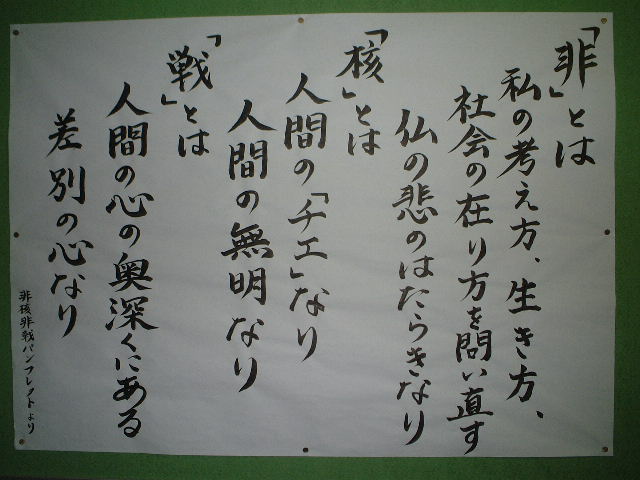 「非」とは
私の考え方、生き方、
社会の在り方を問い直す
仏の悲のはたらきなり
「核」とは
人間の「チエ」なり
人間の無明なり
「戦」とは
人間の心の奥深くにある
差別の心なり
非核非戦パンフレットより